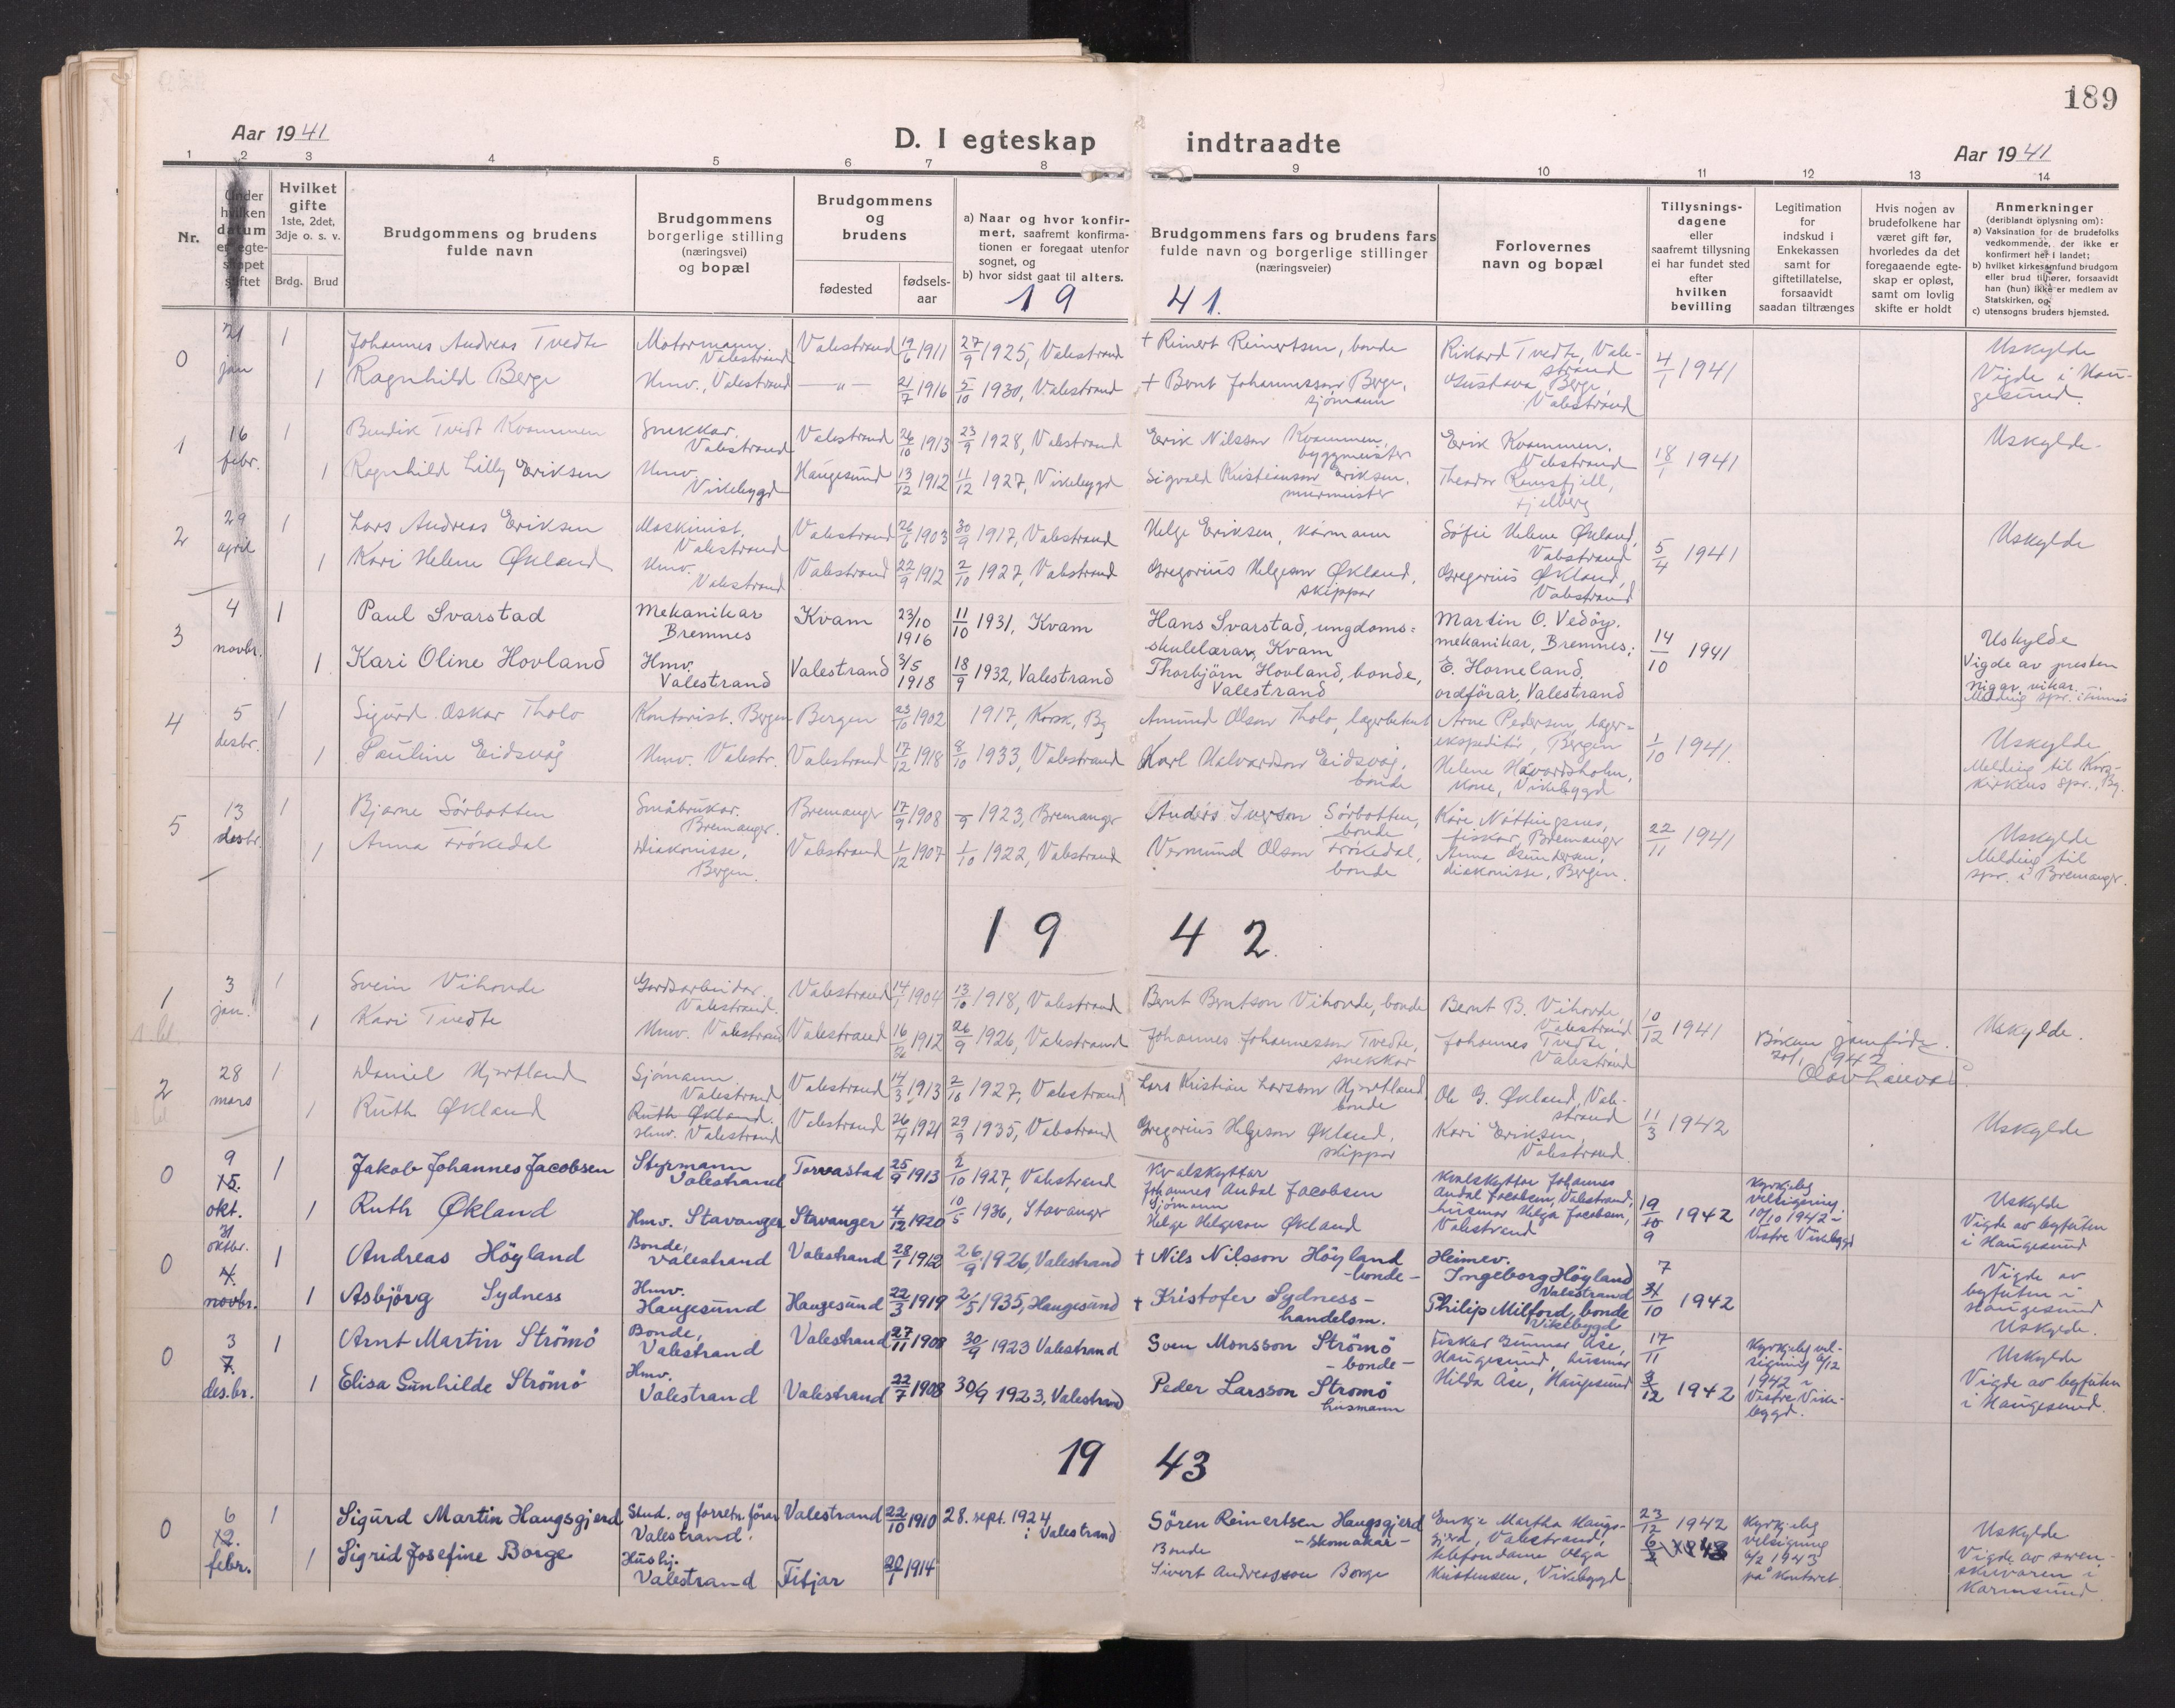 189
Aar 1941
D. I egteskap indtraadte
Aar 1941
1 2 3 4 5 6 7 8 9 10 11 12 13 14
Nr.
Under hvilken datum er egteskapet stiftet
Hvilket gifte 1ste, 2det, 3dje o. s. v.
Brdg. Brud
Brudgommens og brudens fulde navn
Brudgommens borgerlige stilling (næringsvei) og bopæl
Brudgommens og brudens
fødested
fødsels-aar
a) Naar og hvor konfirmert, saafremt konfirmationen er foregaat utenfor sognet, og
b) hvor sidst gaat til alters.
Brudgommens fars og brudens fars fulde navn og borgerlige stillinger (næringsveier)
Forlovernes navn og bopæl
Tillysningsdagene eller saafremt tillysning ei har fundet sted efter hvilken bevilling
Legitimation for indskud i Enkekassen samt for giftetillatelse, forsaavidt saadan tiltrænges
Hvis nogen av brudefolkene har været gift før, hvorledes da det foregaaende egteskap er opløst, samt om lovlig skifte er holdt
Anmerkninger (deriblandt oplysning om):
a) Vaksination for de brudefolks vedkommende, der ikke er konfirmert her i landet;
b) hvilket kirkesamfund brudgom eller brud tilhører, forsaavidt han (hun) ikke er medlem av Statskirken, og
c) utensogns bruders hjemsted.
19 41.
0 21 jan 1 Johannes Andreas Tvedte Motormann Valestrand Valestrand 19/6 1911 27/9 1925, Valestrand + Reinert Reinertsen, bonde Rikard Tvedte, Valestrand 4/1 1941 Uskylde Vigde i Haugesund.
1 Ragnhild Berge Hmv., Valestrand — " — 21/7 1916 5/10 1930, Valestrand + Bernt Johannesson Berge, sjømann Gustava Berge, Valestrand
1 16 febr. 1 Bendik Tvedt Kvammen Snekkar, Valestrand Valestrand 26/10 1913 23/9 1928, Valestrand Erik Nilsson Kvammen, byggmeister Erik Kvammen, Valestrand 18/1 1941 Uskylde
1 Ragnhild Lilly Eriksen Hmv. Vikebygd Haugesund 13/12 1912 11/12 1927, Vikebygd Sigvald Kristianson Eriksen, murmeister Theodor Ramsfjell, Fjelberg
2 29 april 1 Lars Andreas Eriksen Maskinist, Valestrand Valestrand 26/6 1903 30/9 1917, Valestrand Helge Eriksen, kårmann Sófie Helene Økland, Valestrand 5/4 1941 Uskylde
1 Kari Helene Økland Hmv. Valestrand Valestrand 22/9 1912 2/10 1927, Valestrand Gregorius Helgeson Økland, skippar Gregorius Økland, Valestrand
3 4 novbr. 1 Paul Svarstad Mekanikar Bremnes Kvam 23/10 1916 11/10 1931, Kvam Hans Svarstad, ungdomsskulelærar, Kvam Martin O. Vedöy, mekanikar, Bremnes; 14/10 1941 Uskylde Vigde av presten
1 Kari Oline Hovland Hmv. Valestrand Valestrand 3/5 1918 18/9 1932, Valestrand Thorbjörn Hovland, bonde, Valestrand E. Horneland, ordförar, Valestrand
4 5 desbr. 1 Sigurd Oskar Tholo Kontorist. Bergen Bergen 23/10 1902 1917, Korsk, Bg Amund Olson Tholo, lagerbetent Arne Pedersen, lagerekspeditør, Bergen 1/10 1941. Uskylde Melding til Korskirkens spr., Bg.
1 Pauline Eidsvåg Hmv. Valestr. Valestrand 17/12 1918 8/10 1933, Valestrand Karl Halvardson Eidsvåg, bonde Helene Håvardsholm, Vikebygd
5 13 desbr 1 Bjarne Sørbotten Småbrukar. Bremanger. Bremanger 17/9 1908 –/9 1923, Bremanger Anders Iverson Sørbotten, bonde Kåre Nøttingsnes, fiskar, Bremanger 22/11 1941 Uskylde Melding til spr. i Bremanger.
1 Anna Frøkedal Diakonisse, Bergen. Valestrand 1/12 1907 1/10 1922, Valestrand Vermund Olson Frøkedal, bonde Anna Gundersen, diakonisse, Bergen.
19 42
1 3 jan. 1 Svein Vihovde Gardsarbeidar Valestrand. Valestrand 14/1 1904 13/10 1918, Valestrand Bernt Berntson Vihovde, bonde Bernt B. Vihovde, Valestrand 10/12 1941 Uskylde.
1 Kari Tvedte Hmv. Valestrand Valestrand 16/ 1912 26/9 1926, Valestrand Johannes Johannesson Tvedte, snekkar Johannes Tvedte, Valestrand
Boken jamførd. 20/1 1942
2 28 mars 1 Daniel Hjortland Sjømann Valestrand Valestrand 14/3 1913 2/10 1927, Valestrand Lars Kristian Larsson Hjortland bonde Ole G. Økland, Valestrand 11/3 1942 Uskylde
1 Ruth Økland Ruth Økland. Hmv. Valestrand Valestrand 26/4 1921 29/9 1935, Valestrand Gregorius Helgeson Økland, skippar Kari Eriksen, Valestrand.
0 9 15. okt. 1 Jakob Johannes Jacobsen Styrmann Valestrand Torvastad 25/9 1913 2/10 1927, Valestrand Kvalskyttar Johannes Andal Jacobsen Kvalskyttar Johannes Andal Jacobsen, Valestrand, 19/10 9 1942 Kyrkjeleg velsigning 10/10 1942 i Vestre Vikebygd Uskylde Vigde av byfuten i Haugesund
1 Ruth Økland Hmv. Stavanger Stavanger 4/12 1920 10/5 1936, Stavanger Sjømann Helge Helgeson Økland husmor Helga Jacobsen, Valestrand
0 31 oktbr. 4. novbr. 1 Andreas Höyland Bonde, Valestrand Valestrand 28/1 1912 26/9 1926, Valestrand + Nils Nilsson Höyland -bonde- Heimev. Ingeborg Höyland Valestrand 7 31/10 1942 Vigde av byfuten i Haugesund Uskylde.
1 Asbjörg Sydness Hmv. Haugesund Haugesund 22/3 1919 2/5 1935, Haugesund + Kristofer Sydness - handelsm. Philip Milford, bonde Vikebygd
0 3 7. des.br. 1 Arnt Martin Strömö Bonde, Valestrand Valestrand 27/11 1908 30/9 1923 Valestrand Sven Monsson Strömö -bonde- Fiskar Gunnar Åse, Haugesund, husmor 17/11 3/12 1942 Kyrkjeleg velsigning 6/12 1942 i Vestre Vikebygd. Uskylde Vigde av byfuten i Haugesund.
1 Elisa Gunhilde Strömö Hmv. Valestrand Valestrand 22/7 1908 30/9 1923, Valestrand Peder Larsson Stromö husmann Hilda Åse, Haugesund
19 43
0 6 12. febr. 1 Sigurd Martin Haugsgjerd Stud. og forretn.förar Valestrand. Valestrand 22/10 1910 28. sept. 1924 i Valestrand Sören Reinertsen Haugsgjerd Bonde - skomakar - Enkje Martha Haugsgjerd, Valestrand, 23/12 1942 6/2 1943 Kyrkjeleg velsigning 6/2 1943 på kontoret. Uskylde Vigde av sorenskrivaren i Karmsund.
1 Sigrid Josefine Borge Hushj. Valestrand Fitjar 20/1 1914 Sivert Andreasson Borge telefondame Olga Kristensen, Vikebygd